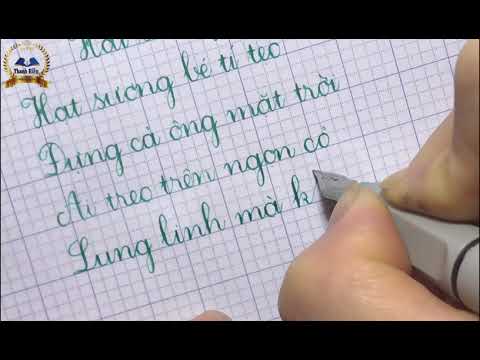 Thanh
Hạt sương bé tí teo
Đựng cả ông mặt trời
Ai treo trên ngọn cỏ
Lung linh mà k